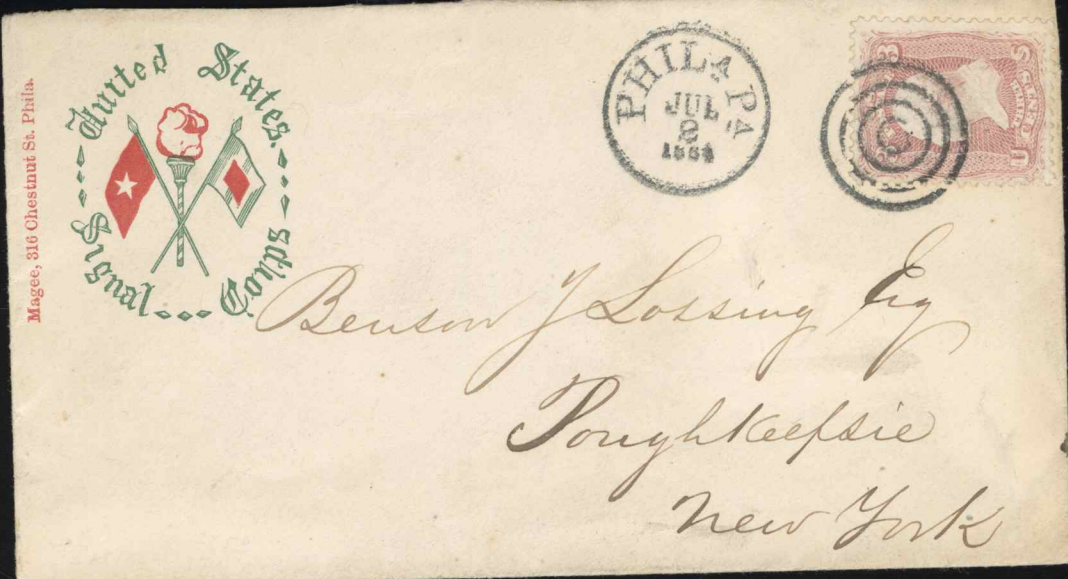 Magee, 316 Chestnut St. Phila.
United States
Signal Corps
PHILA PA
JUL
2
1864
3
U S
Benson J Lossing Esq
Poughkeepsie
New York